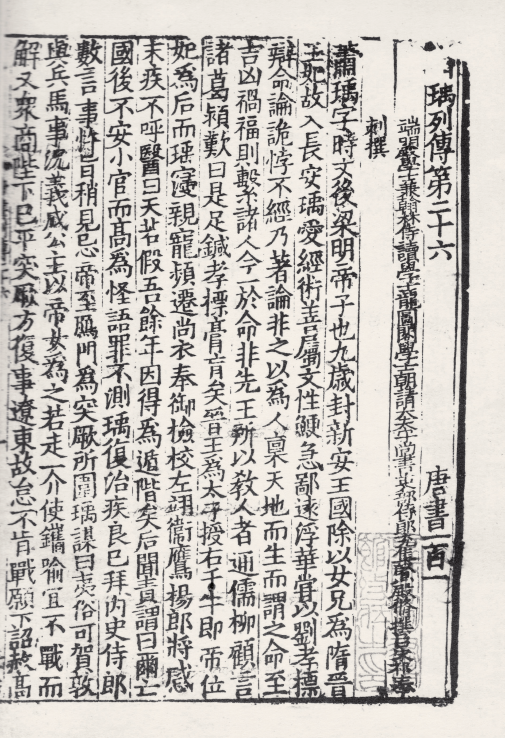 瑀列傳第二十六　唐書一百一
端明殿學士兼翰林侍讀學士龍圖閣學士朝請大夫守尚書吏部侍郎充集賢殿脩撰臣宋祁奉
敕撰
蕭瑀字時文後梁明帝子也九歲封新安王國除以女兄為隋晉
王妃故入長安瑀愛經術善屬文性鯁急鄙遠浮華嘗以劉孝標
辯命論詭悖不經乃著論非之以為人稟天地而生而謂之命至
吉凶禍福則繫諸人今一於命非先王所以教人者通儒柳顧言
諸葛潁歎曰是足鍼孝標膏肓矣晉王為太子授右千牛即帝位
妃為后而瑀寖親寵頻遷尚衣奉御檢校左翊衛鷹揚郎將感
末疾不呼醫曰天若假吾餘年因得為遁階矣后聞責謂曰爾亡
國後不安小官而高為怪語罪不測瑀復治疾良已拜內史侍郎
數言事忤旨稍見忌帝至鴈門為突厥所圍瑀謀曰夷俗可賀敦
與兵馬事況義成公主以帝女為之若走一介使鐫喻宜不戰而
解又衆商陛下已平突厥方復事遼東故怠不肯戰願下詔赦高